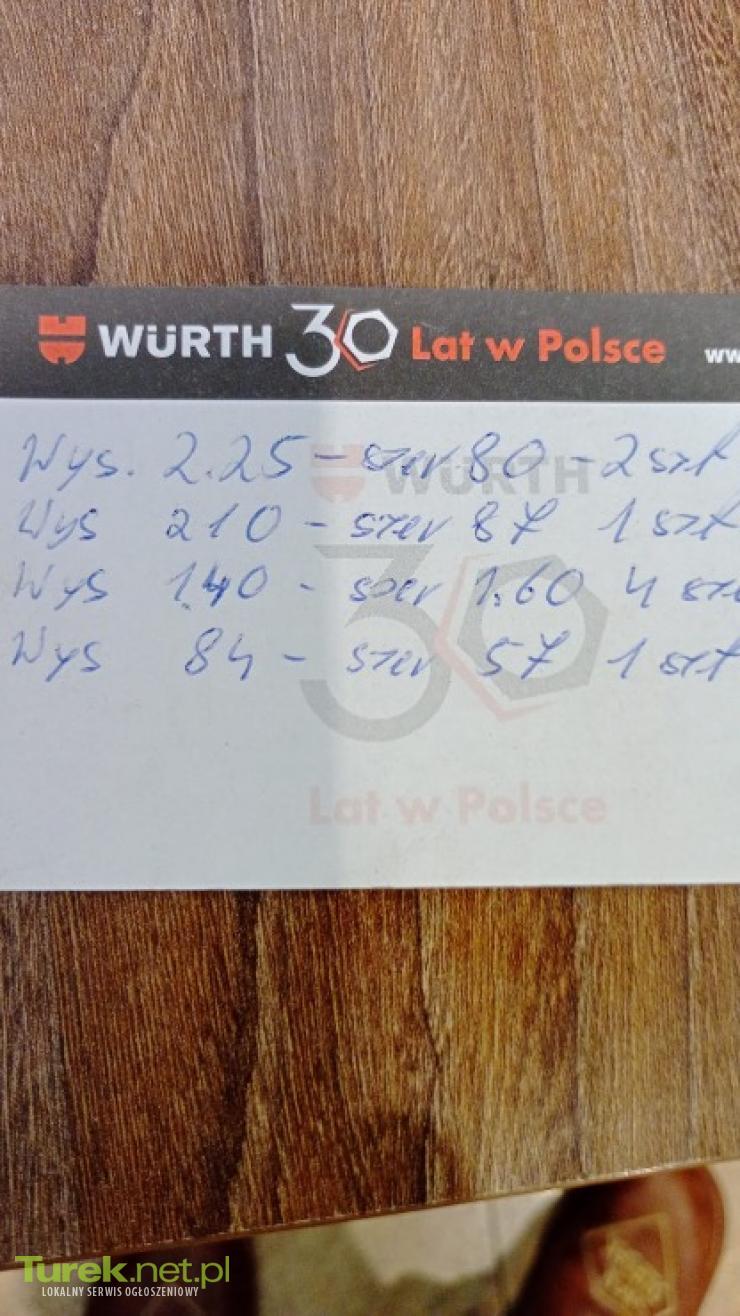 WÜRTH 30 Lat w Polsce ww
Wys. 2.25 - szer 80 - 2 szt
Wys 210 - szer 87 1 szt
Wys 1.40 - szer 1.60 4 szt
Wys 84 - szer 57 1 szt
WÜRTH
30
Lat w Polsce
Turek.net.pl
LOKALNY SERWIS OGŁOSZENIOWY